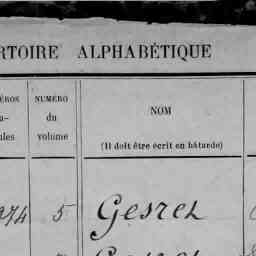 RTOIRE ALPHABÉTIQUE
ÉROS
a-
ules
NUMÉRO
du
volume
NOM
(Il doit être écrit en bâtarde)
974 5 Gesrel